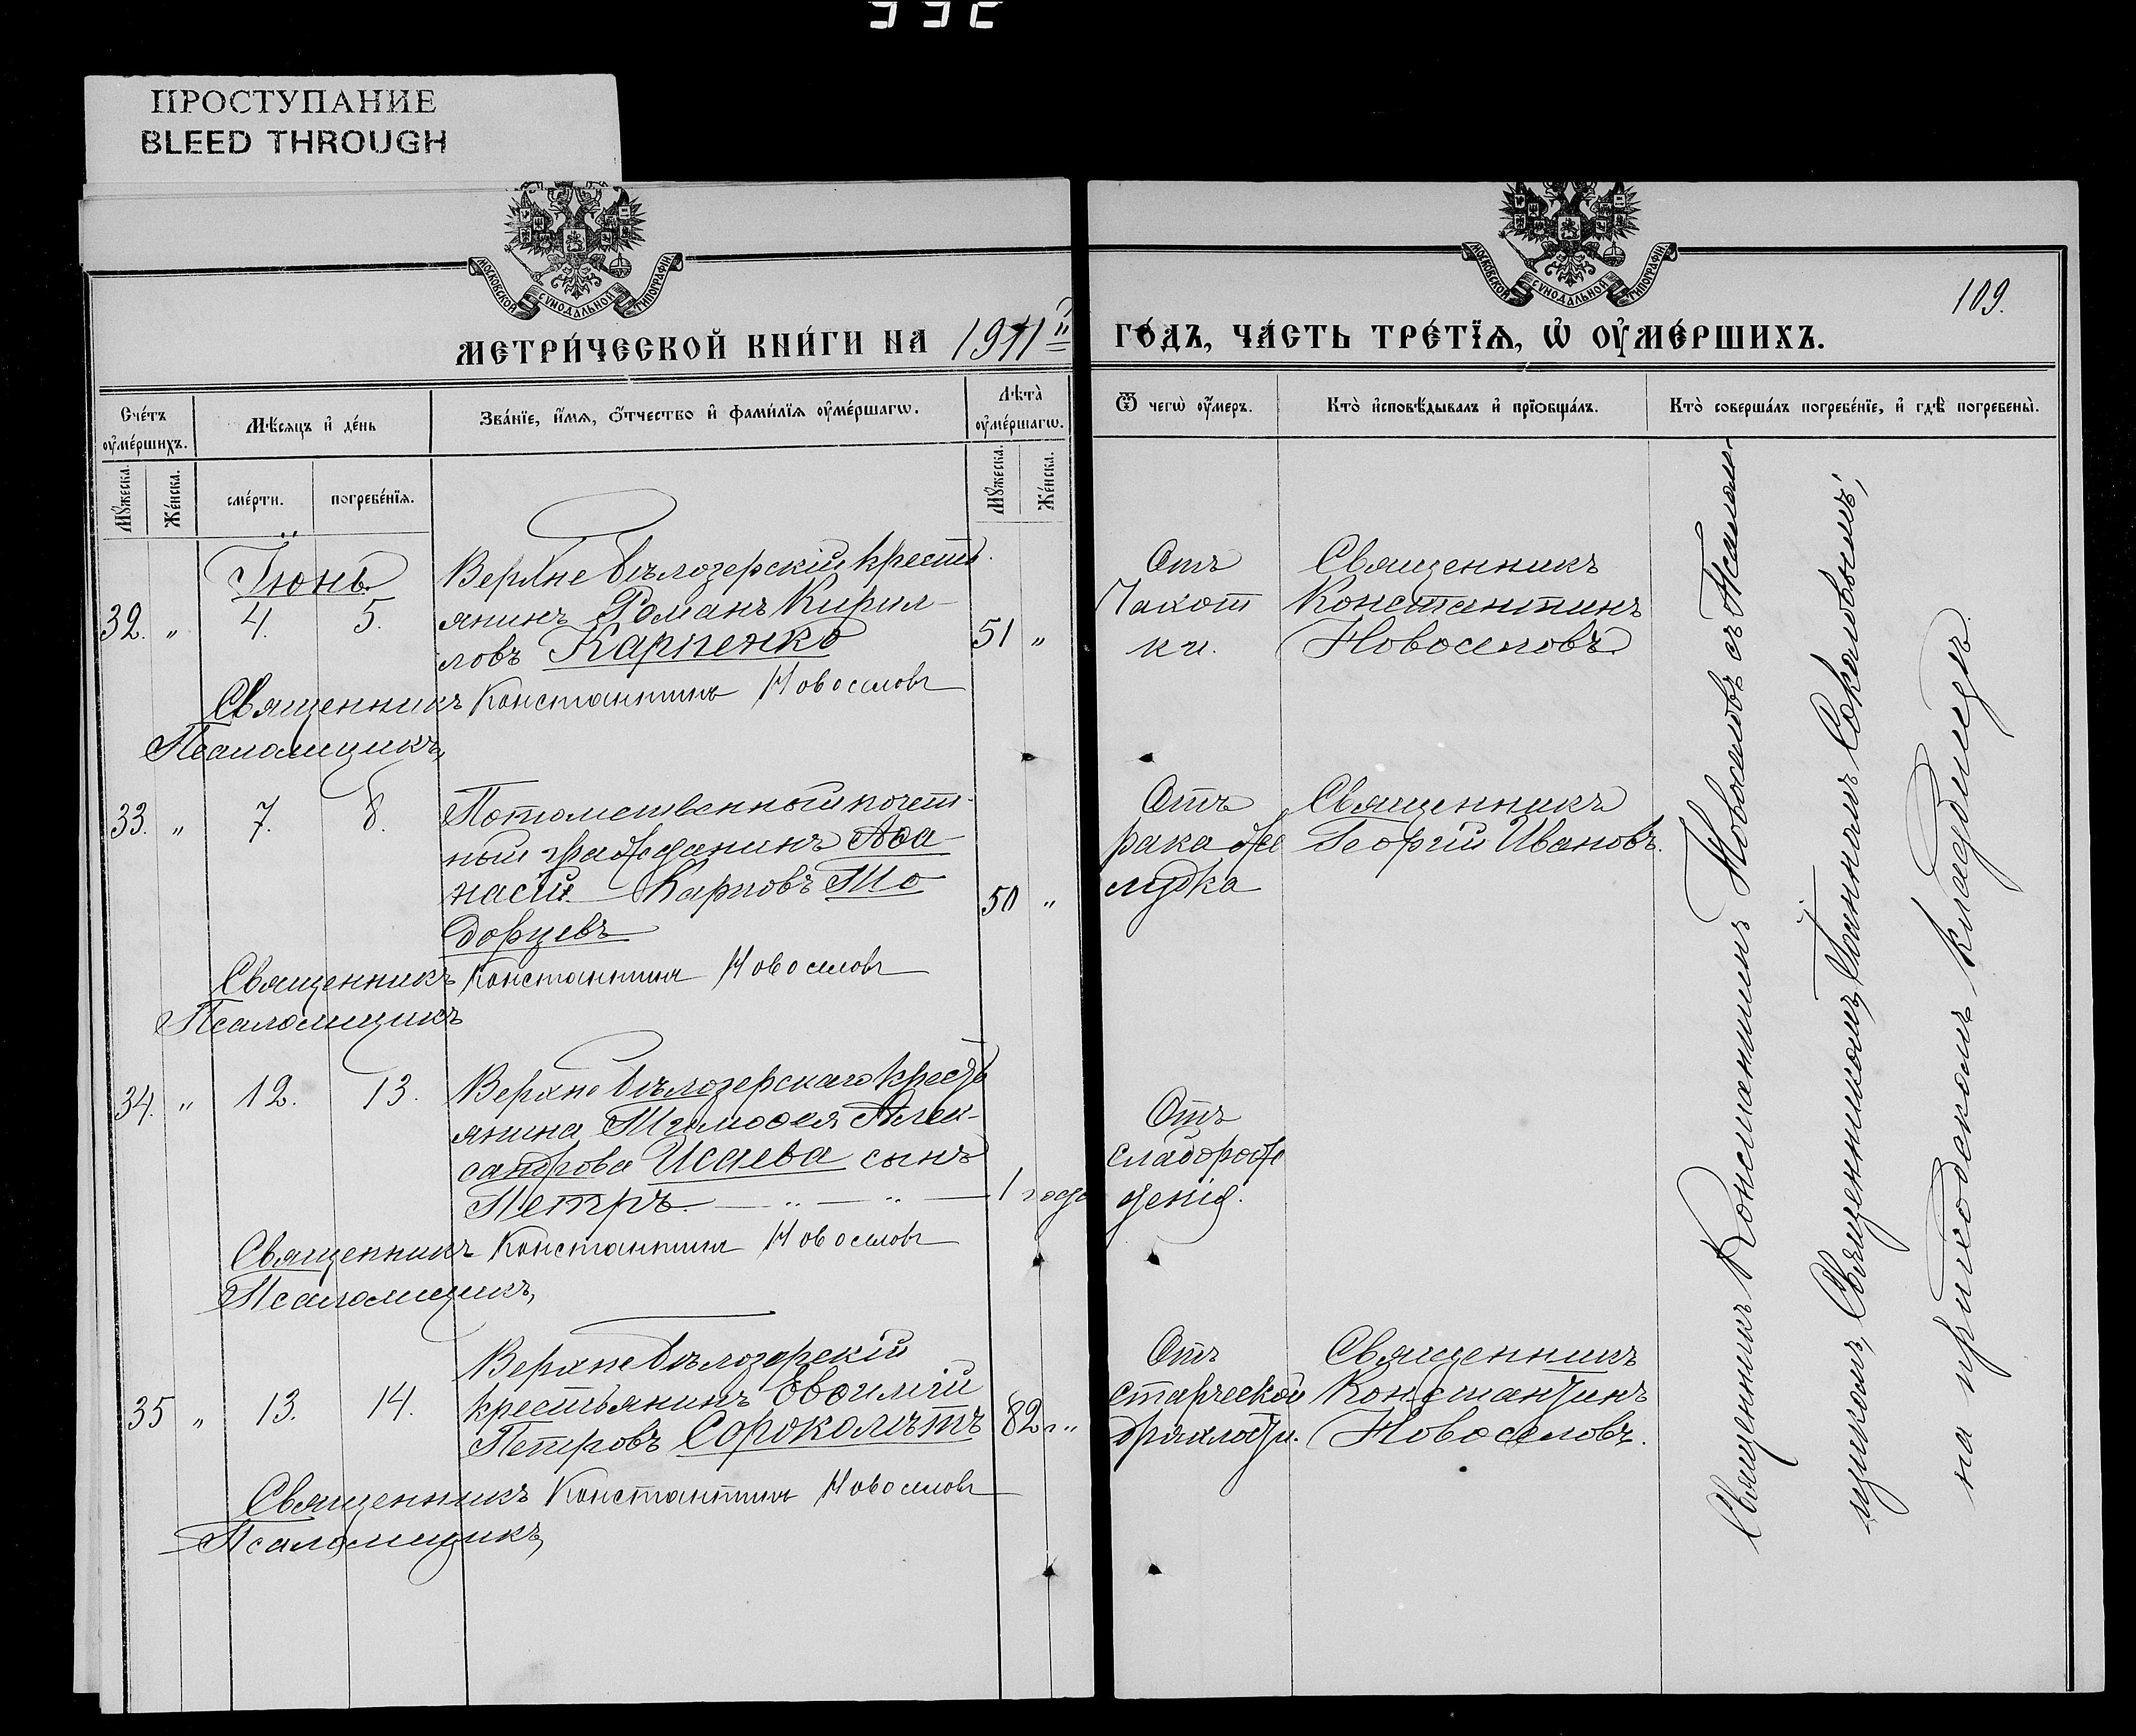 ПРОСТУПАНИЕ
BLEED THROUGH
МОСКОВСКОЙ СѴНОДАЛЬНОЙ ТИПОГРАФІИ
МОСКОВСКОЙ СѴНОДАЛЬНОЙ ТИПОГРАФІИ
109.
МЕТРИ́ЧЕСКОЙ КНИ́ГИ НА 1911 ГО́ДЪ, ЧА́СТЬ ТРЕ́ТЇѦ, Ѡ҆ ОУ҆МЕ́РШИХЪ.
Сче́тъ оу҆ме́ршихъ.
Мѣ́сяцъ и҆ де́нь
Зва́нїе, и҆́мѧ, ѻ҆́тчество и҆ фами́лїѧ оу҆ме́ршагѡ.
Лѣта̀ оу҆ме́ршагѡ.
Ѿ чегѡ̀ оу҆́меръ.
Кто̀ и҆сповѣ́дывалъ и҆ прїѻбща́лъ.
Кто̀ соверша́лъ погребе́нїе, и҆ гдѣ̀ погребены̀.
Мꙋ́жеска.
Же́нска.
сме́рти.
погребе́нїѧ.
Мꙋ́жеска.
Же́нска.
Іюнь
Верхне Бѣлозерскій кресть
32. " 4. 5. янинъ Романъ Кирил-
ловъ Карпенко 51 "
Отъ
Чахот
ки.
Священникъ
Константинъ
Новоселовъ
Священникъ Константинъ Новоселовъ
Псаломщикъ,
33. " 7. 8. Потомственный почет-
ный гражданинъ Аѳа
насій Карповъ То
дорцевъ 50 "
Отъ
рака же
лудка
Священникъ
Георгій Ивановъ.
Священникъ Константинъ Новоселовъ
Псаломщикъ
34. " 12. 13. Верхне Бѣлозерскаго кресть
янина Тимоѳея Алек-
сандрова Исаева сынъ
Петръ — " — " — 1 года
Отъ
слаборож
денія.
Священникъ Константинъ Новоселовъ
Псаломщикъ,
Верхне Бѣлозерскій
35 " 13. 14. крестьянинъ Евѳимій
Петровъ Сороколѣтъ 82 г "
Отъ
старческой
дряхлости.
Священникъ
Константинъ
Новоселовъ.
Священникъ Константинъ Новоселовъ
Псаломщикъ,
Священникъ Константинъ Новоселовъ съ Псалом-
щикомъ, Священникомъ Іоанномъ Соколовымъ,
на приходскомъ кладбищѣ.